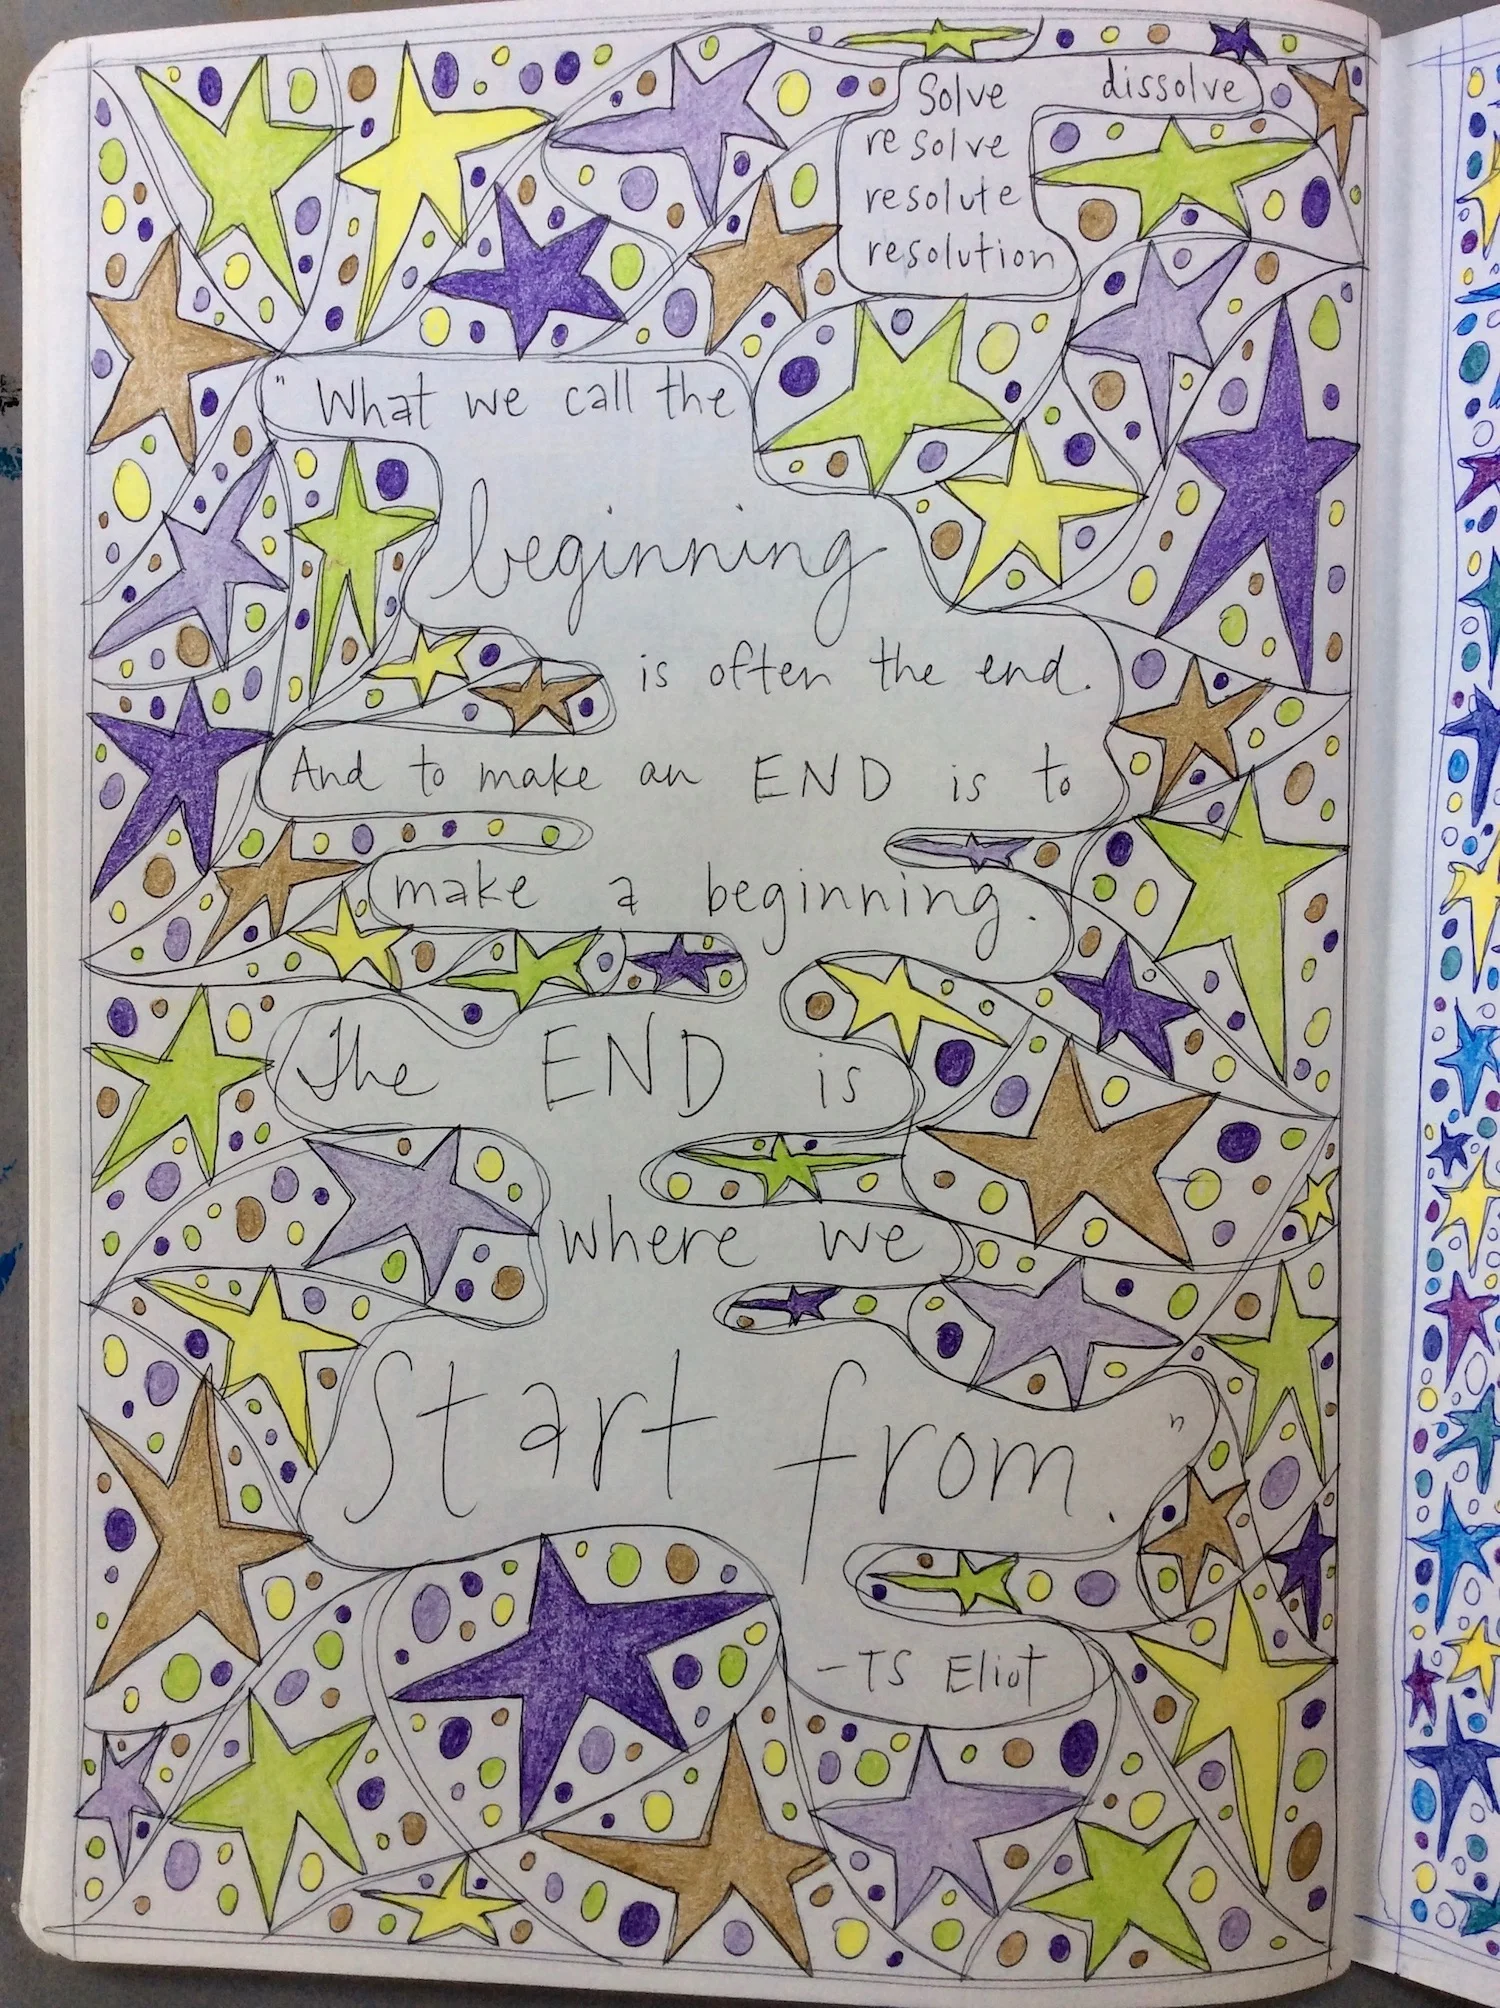 Solve dissolve
resolve
resolute
resolution
"What we call the
beginning
is often the end.
And to make an END is to
make a beginning.
The END is
where we
Start from."
-TS Eliot